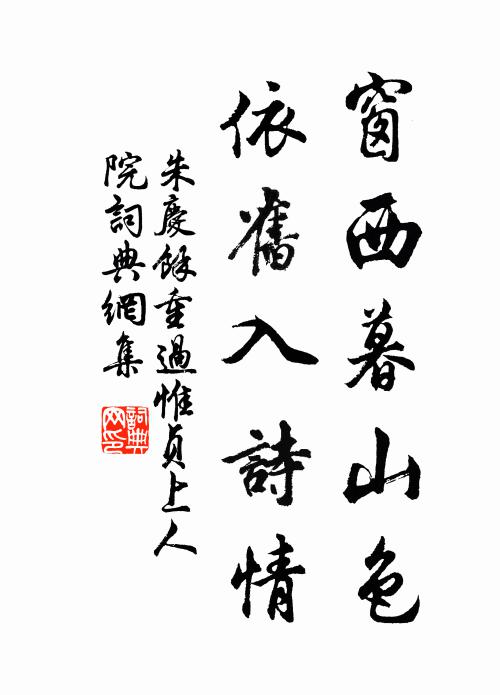 窗西暮山色
依舊入詩情
朱慶餘重過惟貞上人
院詞典網集
詞典
网印